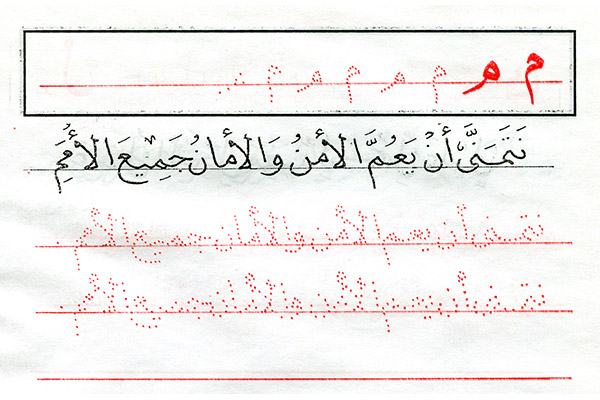 م مـ م مـ م مـ م
نَتَمَنَّى أَنْ يَعُمَّ الأمْنُ وَالأمَانُ جَمِيْعَ الأُمَمِ
نتمنى أن يعم الأمن والأمان جميع الأمم.
نتمنى أن يعم الأمن والأمان جميع الأمم.